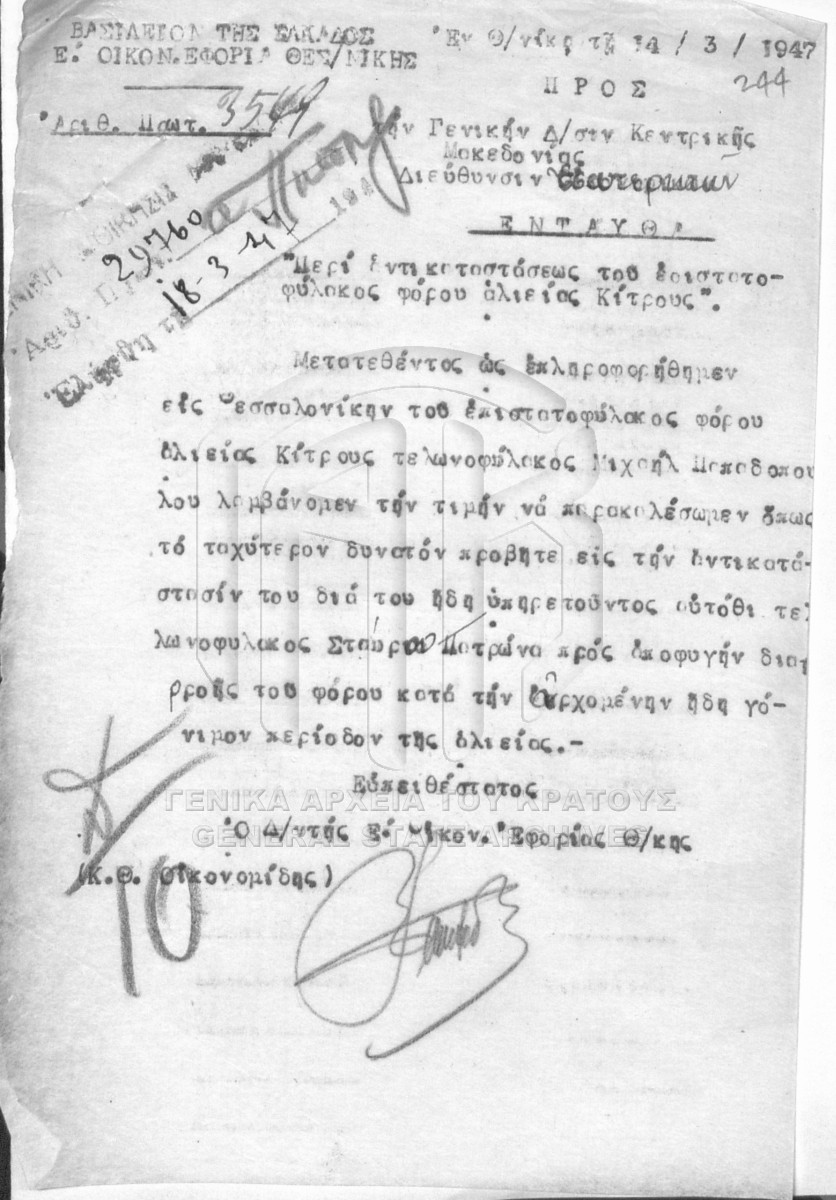 ΒΑΣΙΛΕΙΟΝ ΤΗΣ ΕΛΛΑΔΟΣ
Ε΄. ΟΙΚΟΝ.ΕΦΟΡΙΑ ΘΕΣ/ΝΙΚΗΣ
Ἐν Θ/νίκῃ τῇ 14 / 3 / 1947
244
Π Ρ Ο Σ
Ἀριθ. Πρωτ. 3549
τήν Γενικήν Δ/σιν Κεντρικῆς
Μακεδονίας
Διεύθυνσιν Ἐσωτερικῶν
Ε Ν Τ Α Υ Θ Α
ΓΕΝΙΚΗ ΔΙΟΙΚΗΣΙΣ
Ἀριθ. Πρωτ. 29760
Ἐλήφθη τῇ 18-3-47 194
"Περί ἀντικαταστάσεως τοῦ ἐπιστατο-
φύλακος φόρου ἁλιείας Κίτρους".
Μετατεθέντος ὡς ἐπληροφορήθημεν
εἰς Θεσσαλονίκην τοῦ ἐπιστατοφύλακος φόρου
ἁλιείας Κίτρους τελωνοφύλακος Μιχαήλ Παπαδοπού
λου λαμβάνομεν τήν τιμήν νά παρακαλέσωμεν ὅπως
τό ταχύτερον δυνατόν προβῆτε εἰς τήν ἀντικατά-
στασίν του διά τοῦ ἤδη ὑπηρετοῦντος αὐτόθι τελ
λωνοφύλακος Σταύρου Πατρώνα πρός ἀποφυγήν διαρ
ροῆς τοῦ φόρου κατά τήν ἀρχομένην ἤδη γό-
νιμον περίοδον τῆς ἁλιείας.-
Εὐπειθέστατος
ΓΕΝΙΚΑ ΑΡΧΕΙΑ ΤΟΥ ΚΡΑΤΟΥΣ
GENERAL STATE ARCHIVES
Ὁ Δ/ντής Ε΄. Οἰκον. Ἐφορίας Θ/κης
(Κ.Θ. Οἰκονομίδης)
10